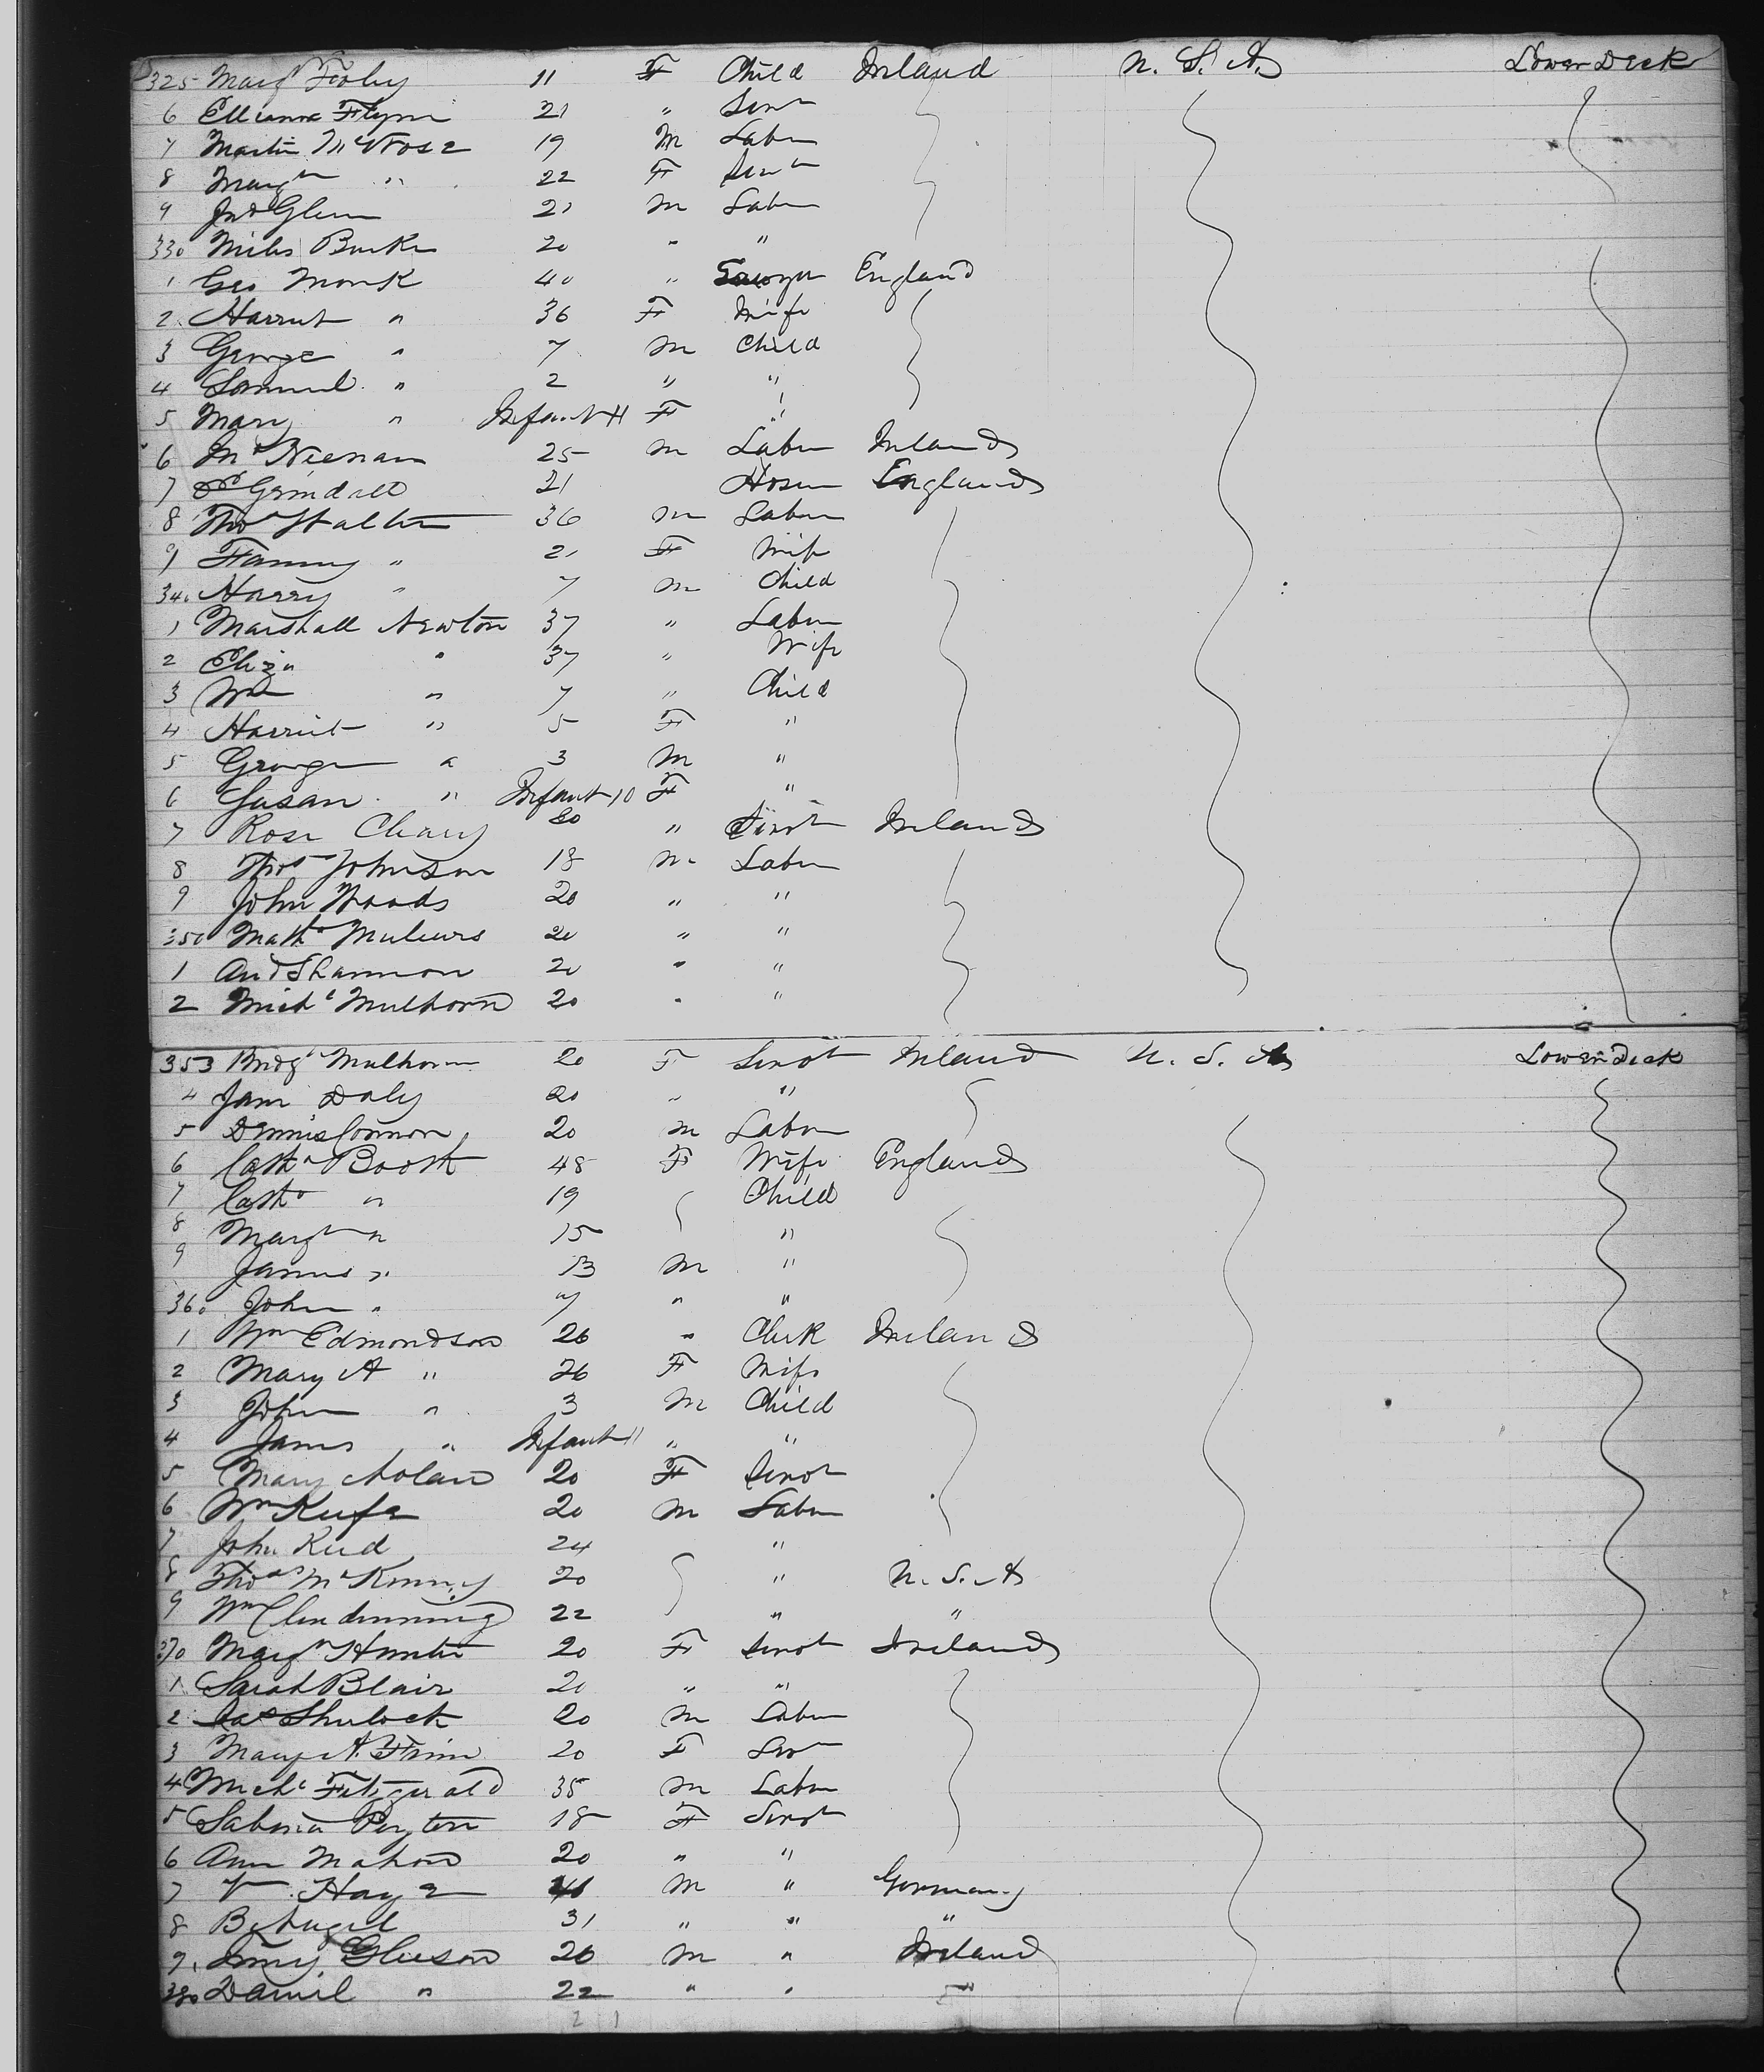 325 Margt Foley 11 F Child Ireland U. S. A. Lower Deck
6 Ellianna Flynn 21 " Servt
7 Martin 19 M Labr
8 Margt " 22 F Servt
9 Jno Glenn 21 M Labr
330 Miles Burke 20 " "
1 Geo Monk 40 " England
2 Harriet " 36 F Wife
3 George " 7 M Child
4 Samuel " 2 " "
5 Mary " Infant 11 F "
6 25 M Labr Ireland
7 Grindall 21 England
8 Thos Walter 36 M Labr
9 Fanny " 21 F Wife
340 Harry " 7 M Child
1 Marshall Newton 37 " Labr
2 Eliza " 37 " Wife
3 Wm " 7 " Child
4 Harriet " 5 F "
5 George " 3 M "
6 Susan " Infant 10 F "
7 Rose Cleary 20 " Servt Ireland
8 Thos Johnson 18 M Labr
9 John Woods 20 " "
350 Matth 20 " "
1 And Shannon 20 " "
2 Michl Mulhorn 20 " "
353 Bridgt Mulhorn 20 F Servt Ireland U. S. A Lower Deck
4 Jane Daly 20 " "
5 Dennis Connor 20 M Labr
6 Cathe Booth 48 F Wife England
7 Cathe " 19 Child
8 Margt " 15 "
9 James " 13 M "
360 John " 7 " "
1 Wm Edmondson 26 " Clerk Ireland
2 Mary A " 26 F Wife
3 John " 3 M Child
4 James " Infant 11 " "
5 Mary Nolan 20 F Servt
6 Wm Keefe 20 M Labr
7 John Reid 24 "
8 Thos McKenney 20 " U. S. A
9 Wm Clendinning 22 " "
370 Margt Hunter 20 F Servt Ireland
1 Sarah Blair 20 " "
2 Jas Shulock 20 M Labr
3 Mary A. Finn 20 F Servt
4 Michl Fitzgerald 35 M Labr
5 Sabina Peyton 18 F Servt
6 Ann Mahon 20 " "
7 M " Germany
8 31 " " "
9 Gleeson 20 M " Ireland
380 Daniel " 22 " " "